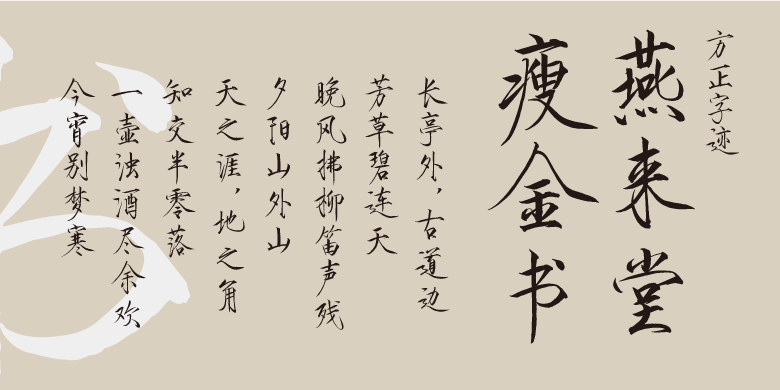 方正字迹
燕来堂
瘦金书
长亭外，古道边
芳草碧连天
晚风拂柳笛声残
夕阳山外山
天之涯，地之角
知交半零落
一壶浊酒尽余欢
今宵别梦寒